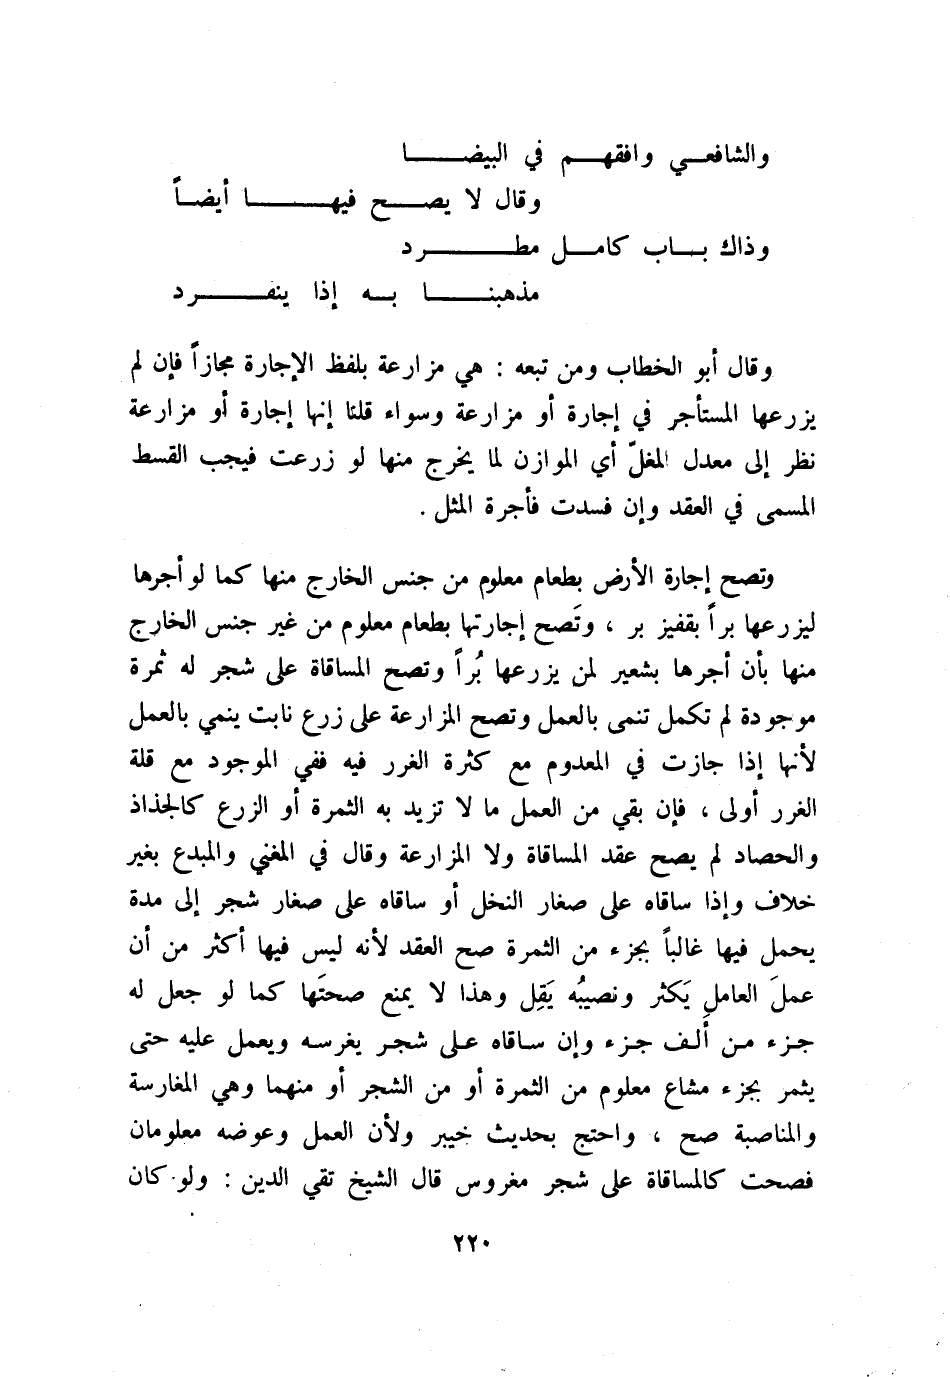 والشافعي وافقهم في البيضا
وقال لا يصح فيها أيضاً
وذاك باب كامل مطرد
مذهبنا به إذا ينفرد
وقال أبو الخطاب ومن تبعه : هي مزارعة بلفظ الإجارة مجازاً فإن لم
يزرعها المستأجر في إجارة أو مزارعة وسواء قلنا إنها إجارة أو مزارعة
نظر إلى معدل المغلّ أي الموازن لما يخرج منها لو زرعت فيجب القسط
المسمى في العقد وإن فسدت فأجرة المثل .
وتصح إجارة الأرض بطعام معلوم من جنس الخارج منها كما لو أجرها
ليزرعها براً بقفيز بر ، وتَصح إجارتها بطعام معلوم من غير جنس الخارج
منها بأن أجرها بشعير لمن يزرعها بُراً وتصح المساقاة على شجر له ثمرة
موجودة لم تكمل تنمى بالعمل وتصح المزارعة على زرع نابت ينمي بالعمل
لأنها إذا جازت في المعدوم مع كثرة الغرر فيه ففي الموجود مع قلة
الغرر أولى ، فإن بقي من العمل ما لا تزيد به الثمرة أو الزرع كالجذاذ
والحصاد لم يصح عقد المساقاة ولا المزارعة وقال في المغني والمبدع بغير
خلاف وإذا ساقاه على صغار النخل أو ساقاه على صغار شجر إلى مدة
يحمل فيها غالباً بجزء من الثمرة صح العقد لأنه ليس فيها أكثر من أن
عملَ العاملِ يَكثر ونصيبُه يَقِل وهذا لا يمنع صحتَها كما لو جعل له
جزء من أَلف جزء وإن ساقاه على شجر يغرسه ويعمل عليه حتى
يثمر بجزء مشاع معلوم من الثمرة أو من الشجر أو منهما وهي المغارسة
والمناصبة صح ، واحتج بحديث خيبر ولأن العمل وعوضه معلومان
فصحت كالمساقاة على شجر مغروس قال الشيخ تقي الدين : ولو كان
٢٢٠